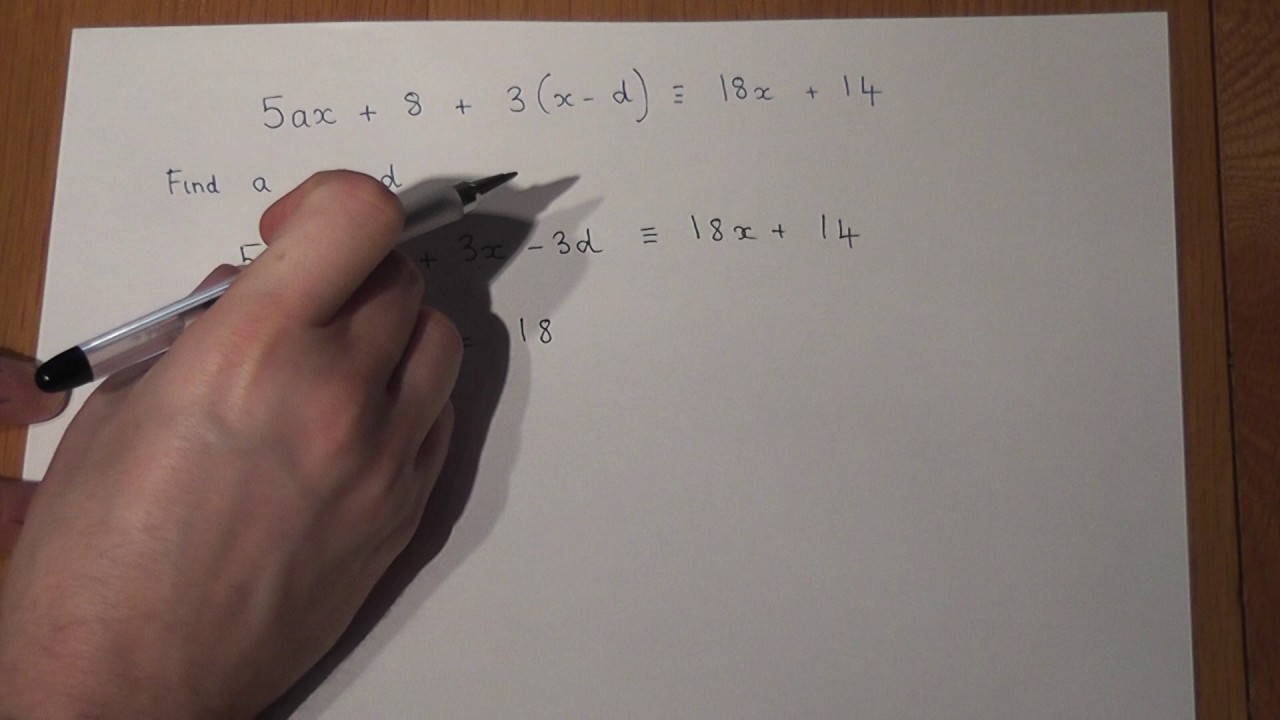 5ax + 8 + 3(x - d) ≡ 18x + 14
Find a d
5 + 3x - 3d ≡ 18x + 14
= 18